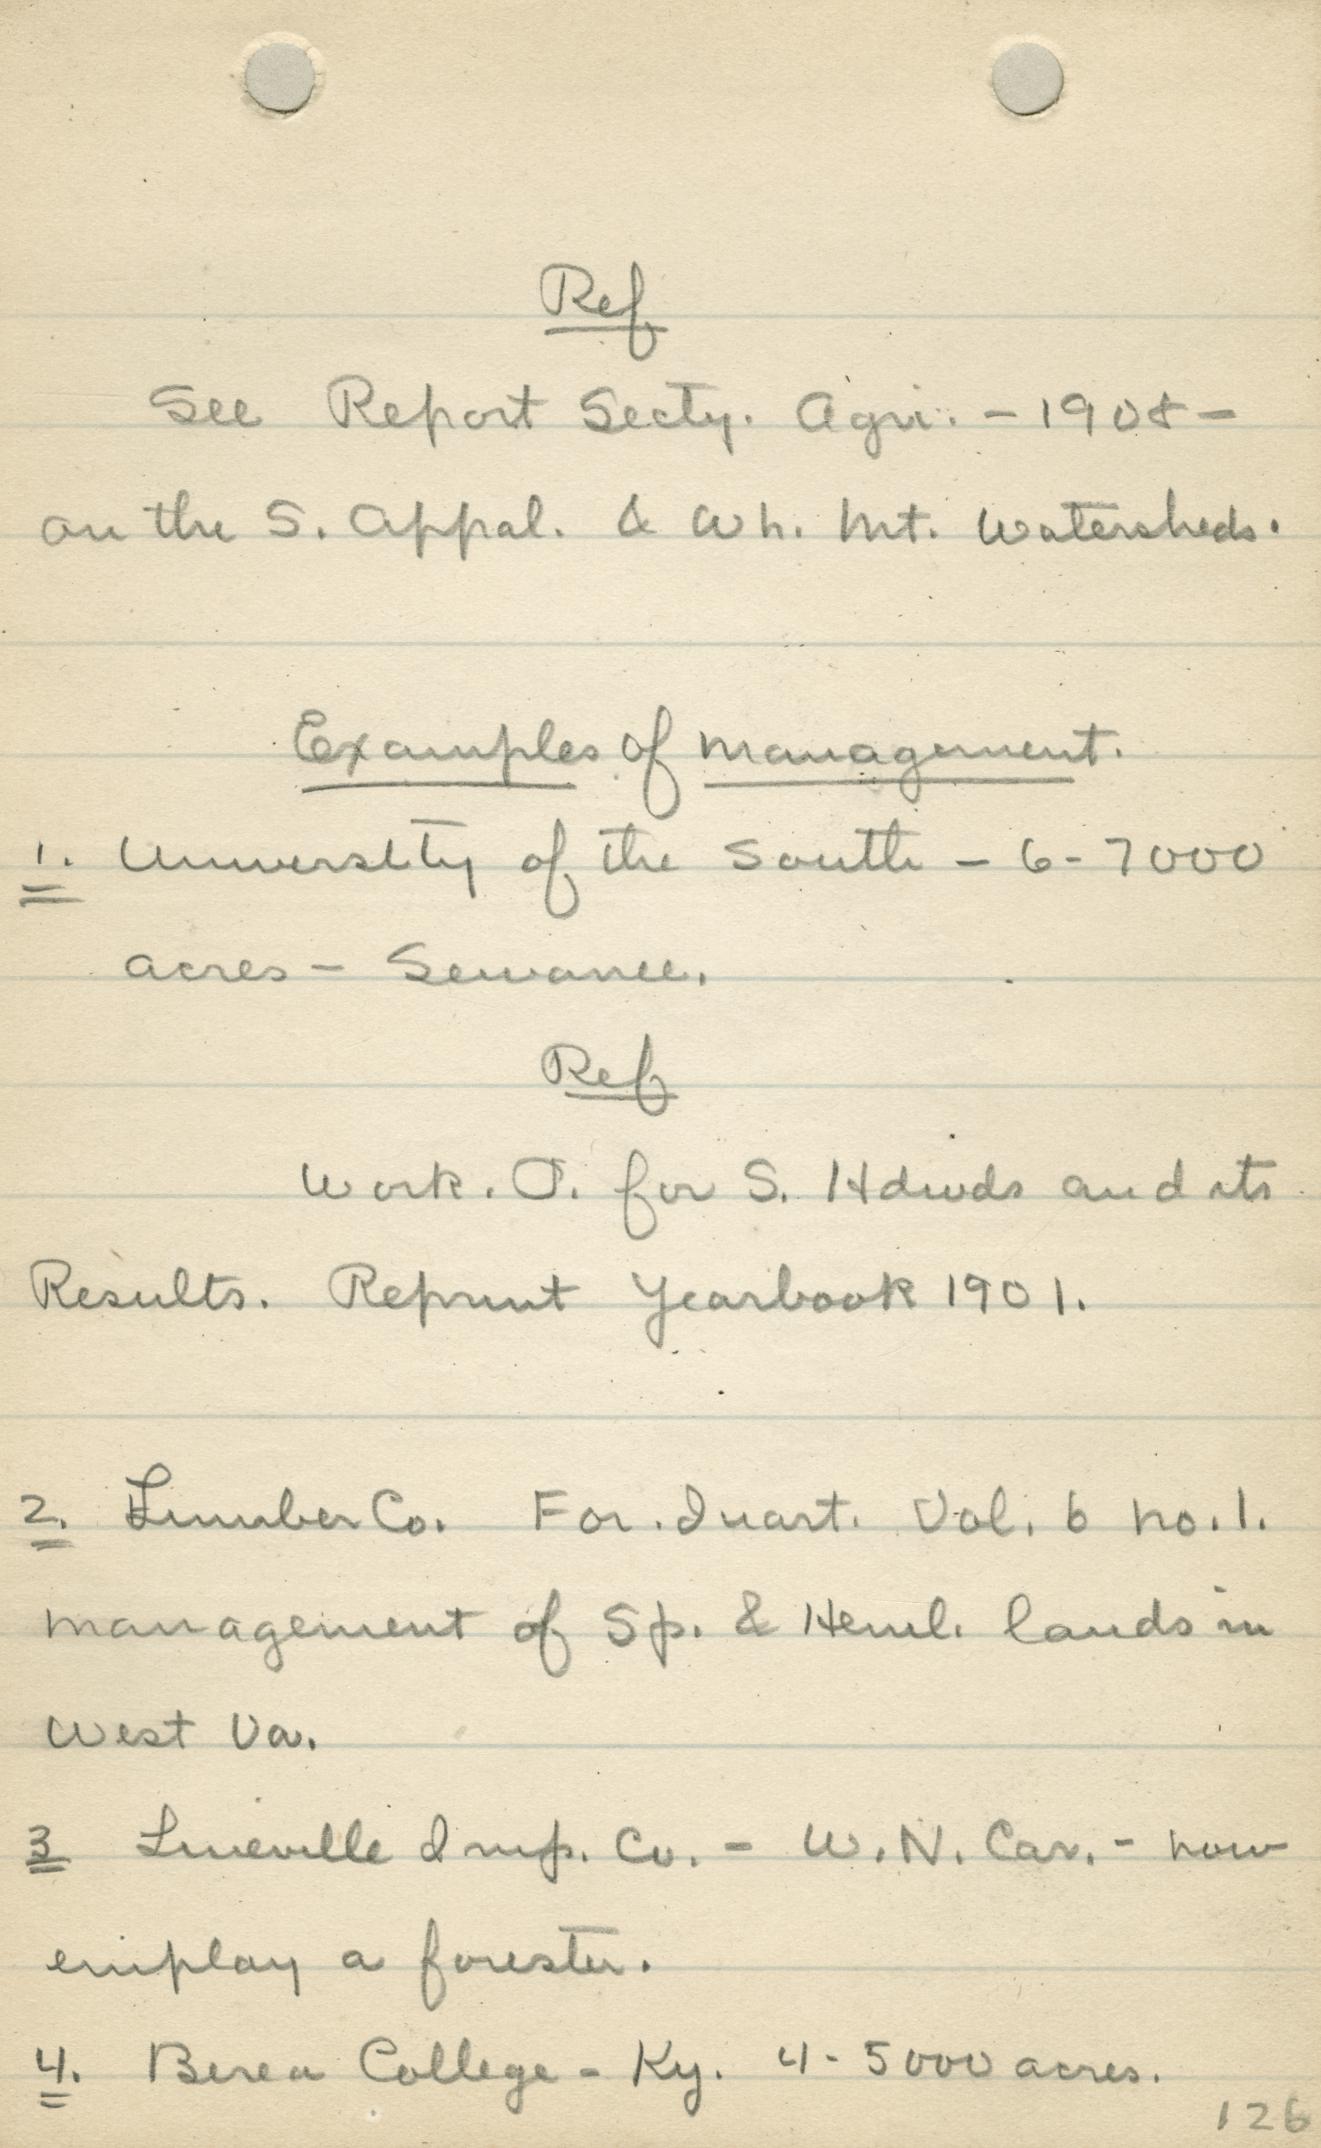 Ref
See Report Secty. Agri. - 1908 -
on the S. Appal. & Wh. Mt. Watersheds.
Examples of Management.
1. University of the South - 6-7000
acres - Sewanee.
Ref
Work. P. for S. Hdwds and its
Results. Reprint Yearbook 1901.
2. Lumber Co. For. Quart. Vol. 6 no. 1.
Management of Sp. & Heml. lands in
West Va.
3 Lineville Imp. Co. - W. N. Car. - now
employ a forester.
4. Berea College - Ky. 4-5000 acres.
126